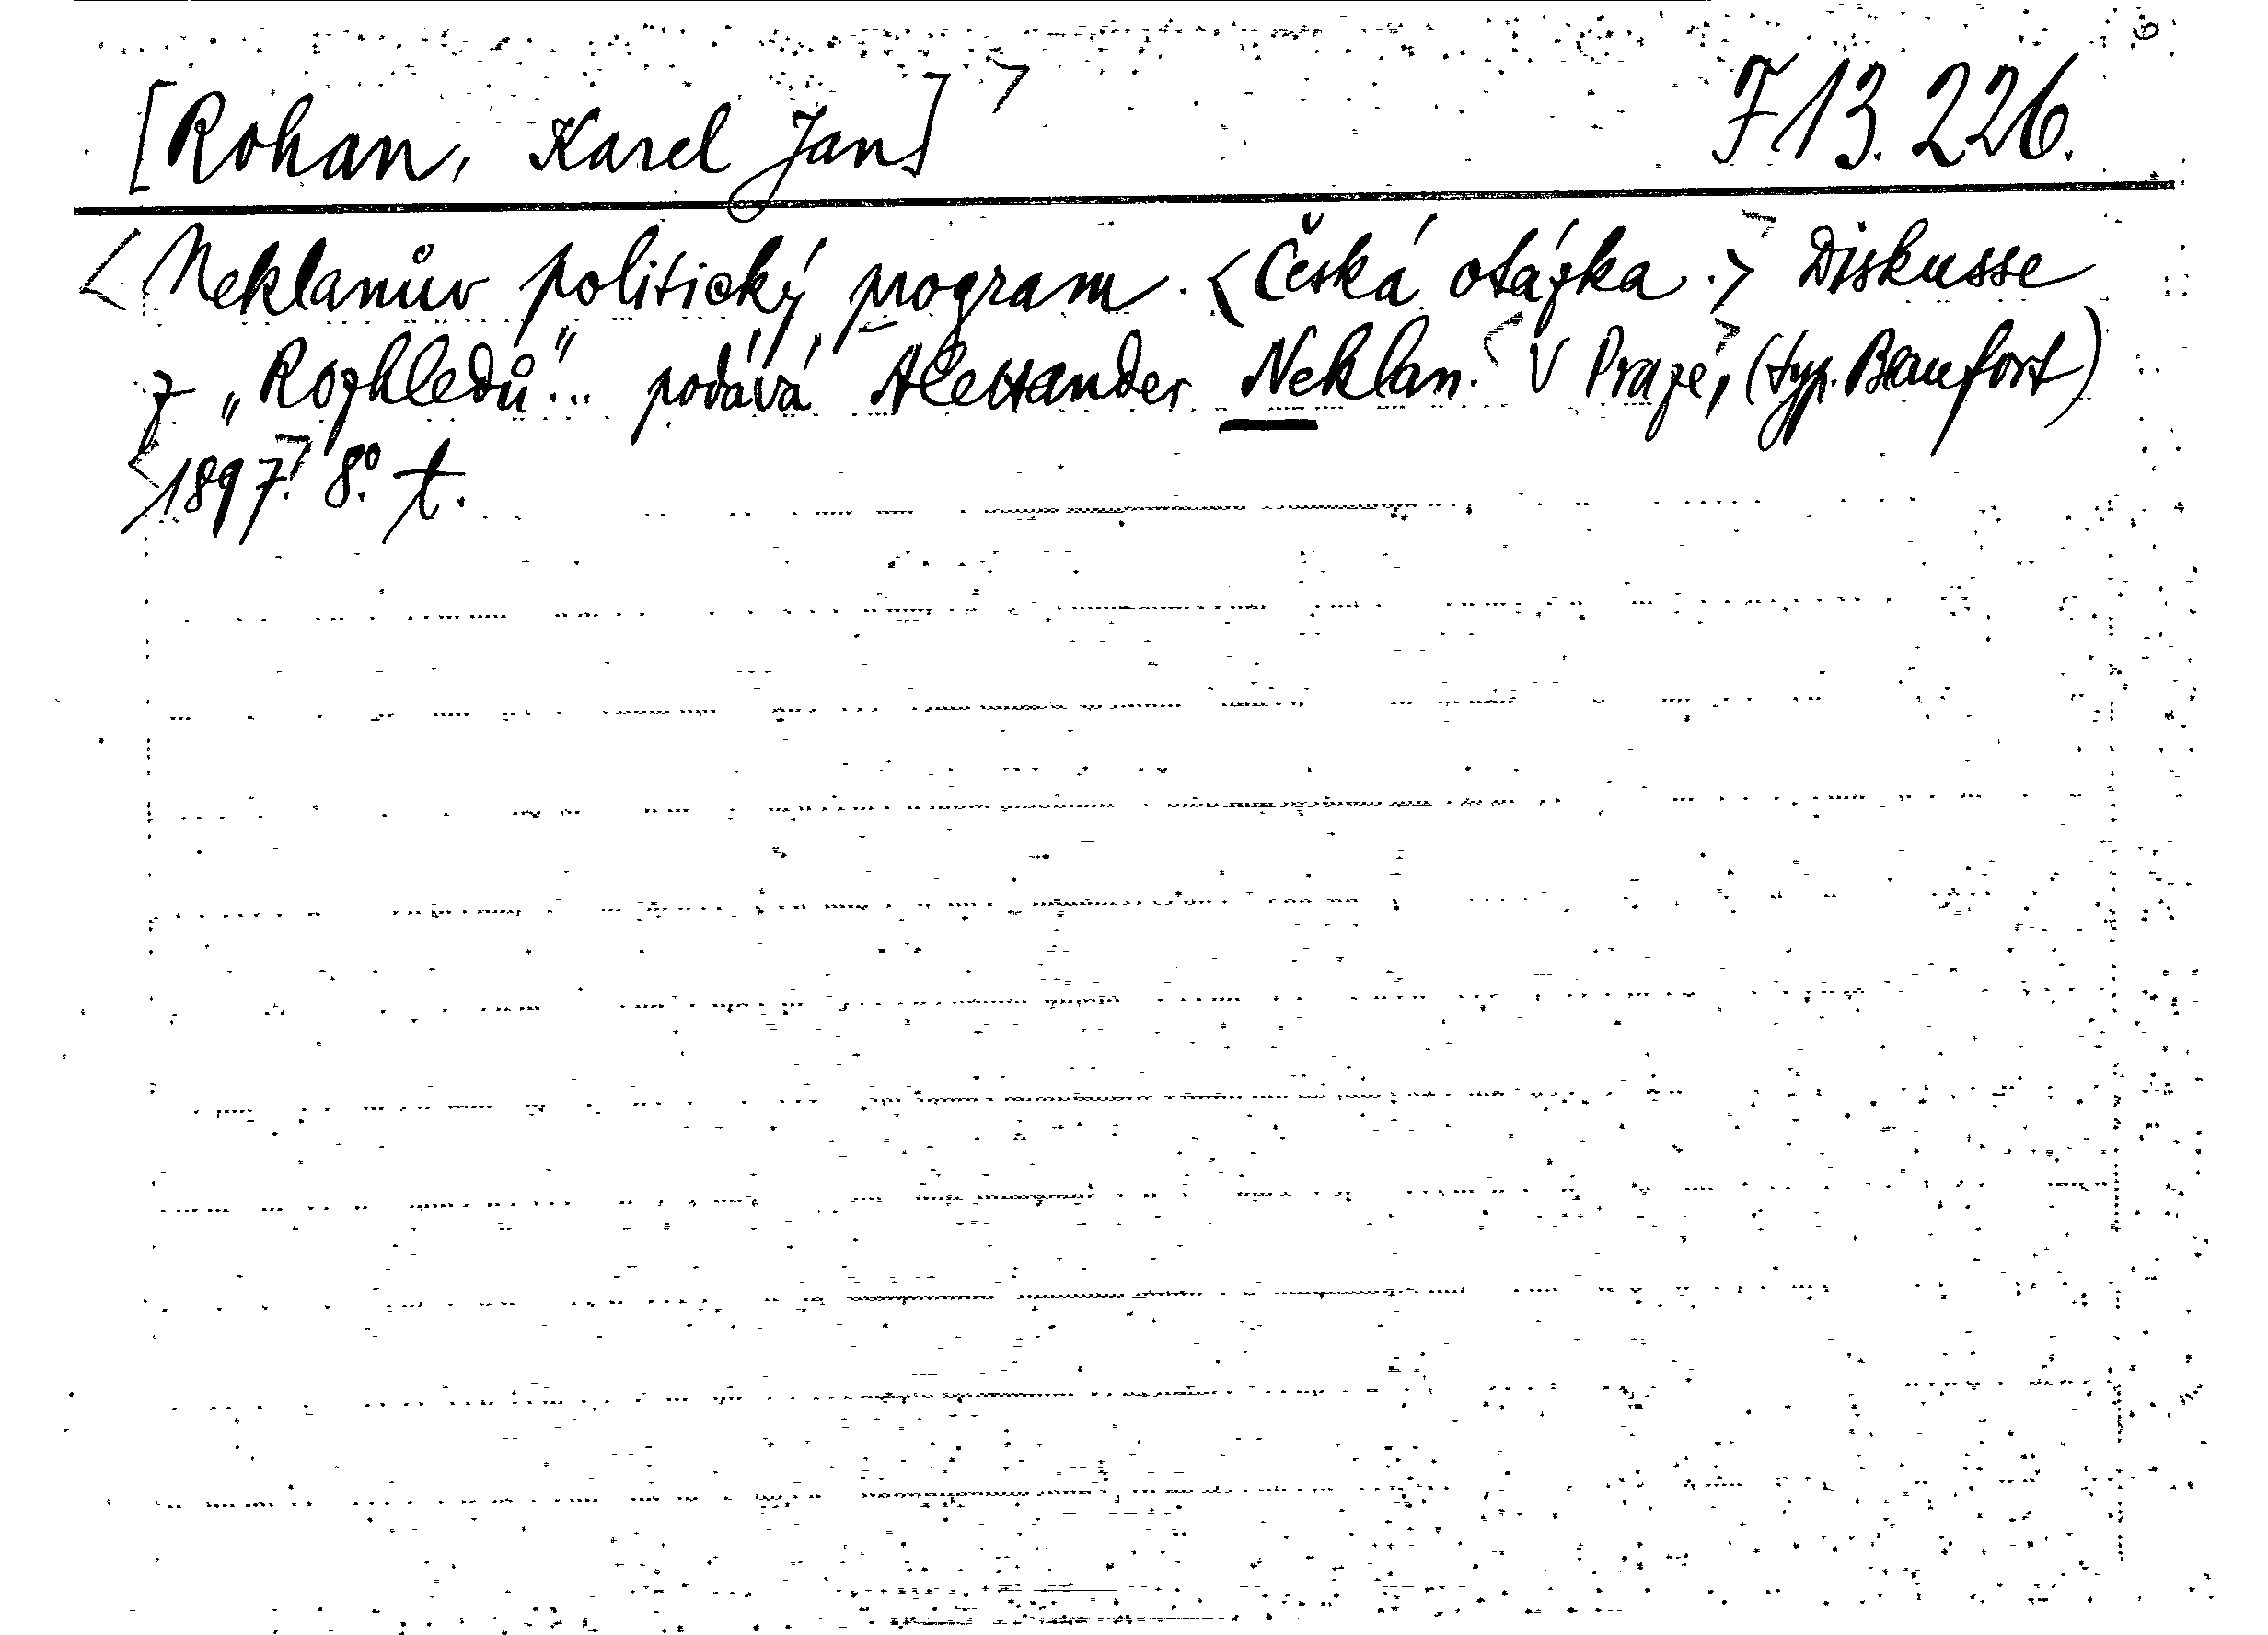 [Rohan, Karel Jan] > F 13.226.
<Neklanův politický program. <Česká otázka.> Diskusse
z „Rozhledů“... podává Alexander Neklan. V Praze, (typ. Beaufort)
<1897.> 8°. t.